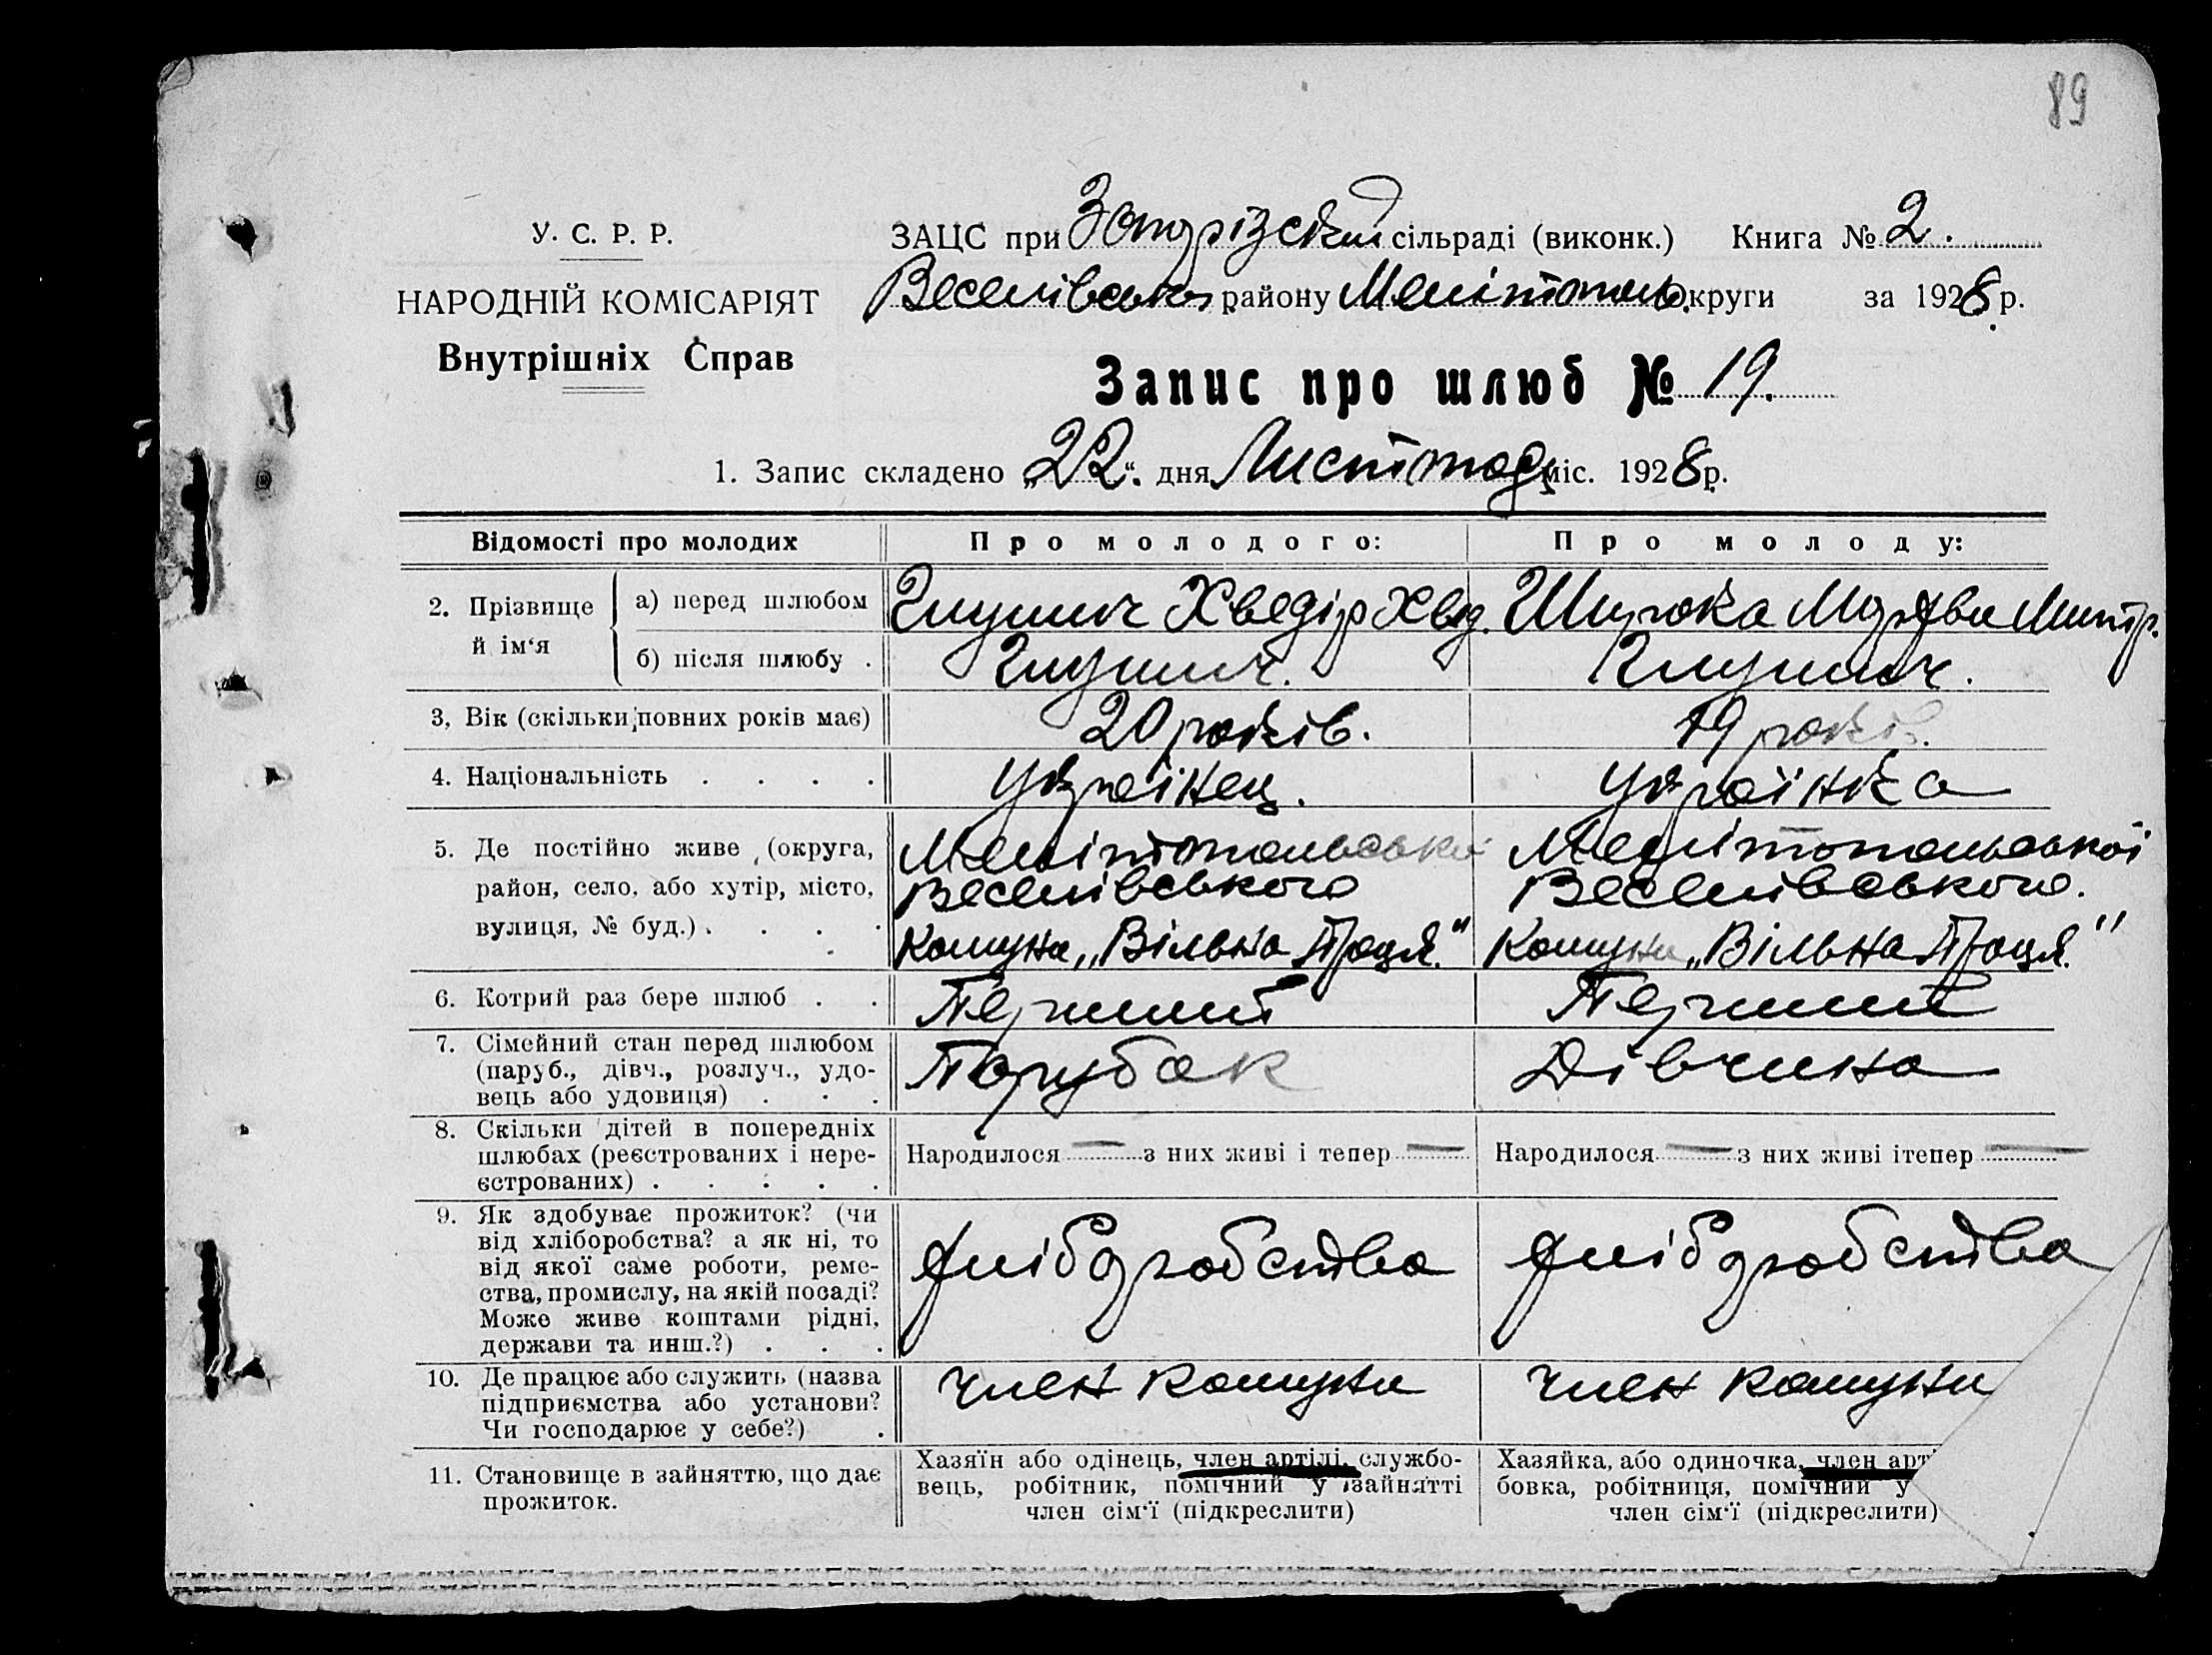 89
У. С. Р. Р.
НАРОДНІЙ КОМІСАРІЯТ
Внутрішніх Справ
ЗАЦС при сільраді (виконк.) Книга № 2.
Веселівськ. району Мелітополь. округи за 1928 р.
Запис про шлюб № 19.
1. Запис складено „22“ дня Листопад міс. 1928 р.
Відомості про молодих
Про молодого:
Про молоду:
2. Прізвище й ім‘я
а) перед шлюбом
Хведір Хвед.
Широка
б) після шлюбу .
3, Вік (скільки повних років має)
20 років.
19 років.
4. Національність . . . .
Українець.
Українка
5. Де постійно живе (округа,
район, село, або хутір, місто,
вулиця, № буд.) . . . .
Мелітопольської
Веселівського
Комуна „Вільна Праця."
Мелітопольської
Веселівського.
Комуни „Вільна Праця."
6. Котрий раз бере шлюб . .
Перший
Перший
7. Сімейний стан перед шлюбом
(паруб., дівч., розлуч., удо-
вець або удовиця) . . .
Парубок
Дівчина
8. Скільки дітей в попередніх
шлюбах (реєстрованих і нере-
єстрованих) . . . . .
Народилося — з них живі і тепер —
Народилося — з них живі ітепер —
9. Як здобуває прожиток? (чи
від хліборобства? а як ні, то
від якої саме роботи, реме-
ства, промислу, на якій посаді?
Може живе коштами рідні,
держави та инш.?) . . .
хліборобства
хліборобства
10. Де працює або служить (назва
підприємства або установи?
Чи господарює у себе?) .
член комуни
член комуни
11. Становище в зайняттю, що дає
прожиток.
Хазяїн або одінець, член артілі, службо-
вець, робітник, помічний у зайнятті
член сім‘ї (підкреслити)
Хазяйка, або одиночка, член арт
бовка, робітниця, помічний у
член сім‘ї (підкреслити)